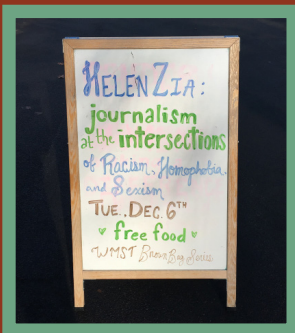 HELEN ZIA:
journalism
at the intersections
of Racism, Homophobia,
and Sexism
TUE., DEC. 6TH
free food
WMST Brown Bag Series